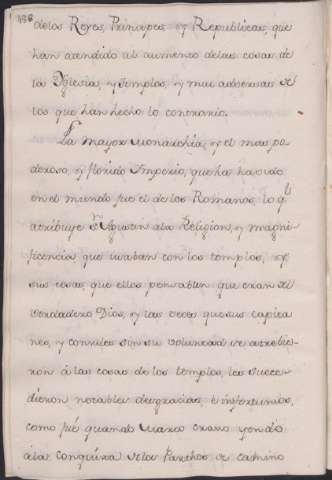 186
delos Reyes, Principes, y Republicas, que
han atendido al aumento delas cosas de
la Yglesia, y Templos, y muy adversas de
los que han hecho lo contrario.
La mayor Monarchia, y el mas po-
deroso, y florido Imperio, que ha havido
en el mundo fue el de los Romanos, lo ql
atribuye Sn Agustin ala Religion, y magni-
ficencia que usaban con los templos, y
sus cosas, que ellos pensaban que eran del
verdadero Dios, y las veces que sus capita
nes, y consules con su voluntad se atrebie-
ron à las cosas de los templos, les suce-
dieron notables desgracias, è infortunios,
como fué quando Marco Craso yendo
ala conquista delos Parthos de camino